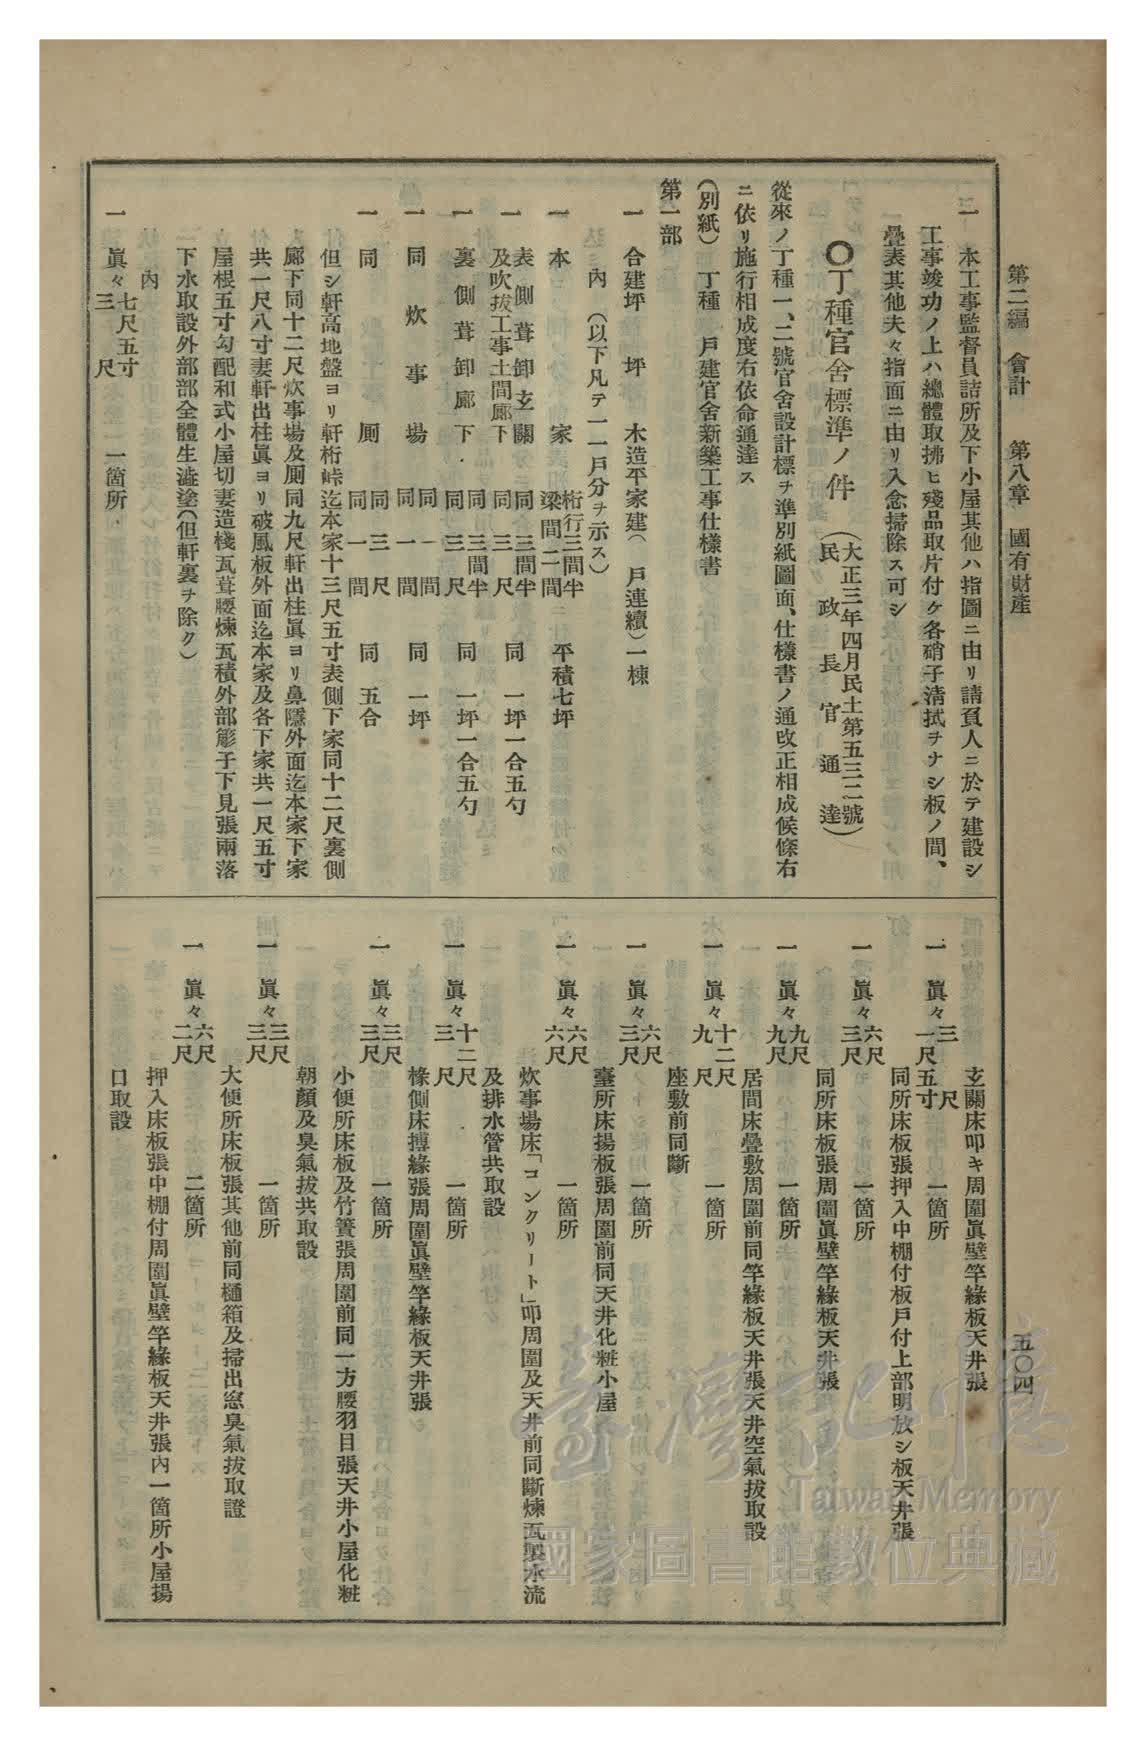 第二編　會計　　第八章　國有財產
五〇四
一　本工事監督員詰所及下小屋其他ハ指圖ニ由リ請負人ニ於テ建設シ
工事竣功ノ上ハ總體取拂ヒ殘品取片付ケ各硝子淸拭ヲナシ板ノ間、
疊表其他夫々指面ニ由リ入念掃除ス可シ
〇丁種官舍標準ノ件（大正三年四月民土第五三二號
民政長官通達）
從來ノ丁種一、二號官舍設計標ヲ準別紙圖面、仕樣書ノ通改正相成候條右
ニ依リ施行相成度右依命通達ス
（別紙）　丁種　戶建官舍新築工事仕樣書
第一部
一　合建坪　坪　木造平家建（　戶連續）一棟
內　（以下凡テ一一戶分ヲ示ス）
一　本　家　桁行三間半　平積七坪
梁間二間
一　表側葺卸玄關　同三間半　同　一坪一合五勺
及吹拔工事土間廊下　同三尺
一　裏側葺卸廊下　同三間半　同　一坪一合五勺
同三尺
一　同　炊事場　同一間　同　一坪
同一間
一　同　厠　同三尺　同　五合
同一間
但シ軒高地盤ヨリ軒桁峠迄本家十三尺五寸表側下家同十二尺裏側
廊下同十二尺炊事場及厠同九尺軒出柱眞ヨリ鼻隱外面迄本家下家
共一尺八寸妻軒出柱眞ヨリ破風板外面迄本家及各下家共一尺五寸
屋根五寸勾配和式小屋切妻造棧瓦葺腰煉瓦積外部簓子下見張雨落
下水取設外部部全體生澁塗（但軒裏ヲ除ク）
內
一　眞々七尺五寸　一箇所
三　尺
玄關床叩キ周圍眞壁竿緣板天井張
一　眞々三　尺　一箇所
一尺五寸
同所床板張押入中棚付板戶付上部明放シ板天井張
一　眞々六尺　一箇所
三尺
同所床板張周圍眞壁竿緣板天井張
一　眞々九尺　一箇所
九尺
居間床疊敷周圍前同竿緣板天井張天井空氣拔取設
一　眞々十二尺　一箇所
九　尺
座敷前同斷
一　眞々六尺　一箇所
三尺
臺所床揚板張周圍前同天井化粧小屋
一　眞々六尺　一箇所
六尺
炊事場床「コンクリート」叩周圍及天井前同斷煉瓦製水流
及排水管共取設
一　眞々十二尺　一箇所
三　尺
椽側床搏緣張周圍眞壁竿緣板天井張
一　眞々三尺　一箇所
三尺
小便所床板及竹簀張周圍前同一方腰羽目張天井小屋化粧
朝顏及臭氣拔共取設
一　眞々三尺　一箇所
三尺
大便所床板張其他前同樋箱及掃出窓臭氣拔取證
一　眞々六尺　二箇所
二尺
押入床板張中棚付周圍眞壁竿緣板天井張內一箇所小屋揚
口取設
臺灣記憶
Taiwan Memory
國家圖書館數位典藏